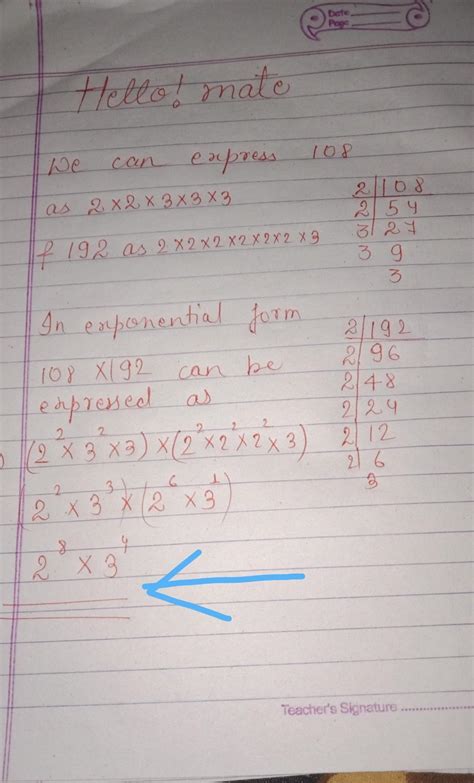 Date
Page
Hello! mate
We can express 108
as 2×2×3×3×3
f 192 as 2×2×2×2×2×2×3
2 | 108
2 | 54
3 | 27
3 9
3
In exponential form
108 × 192 can be
expressed as
(2² × 3² × 3) × (2² × 2² × 2² × 3)
(2² × 3³) × (2⁶ × 3¹)
2⁸ × 3⁴
2 | 192
2 | 96
2 | 48
2 | 24
2 | 12
2 | 6
3
Teacher's Signature ..................